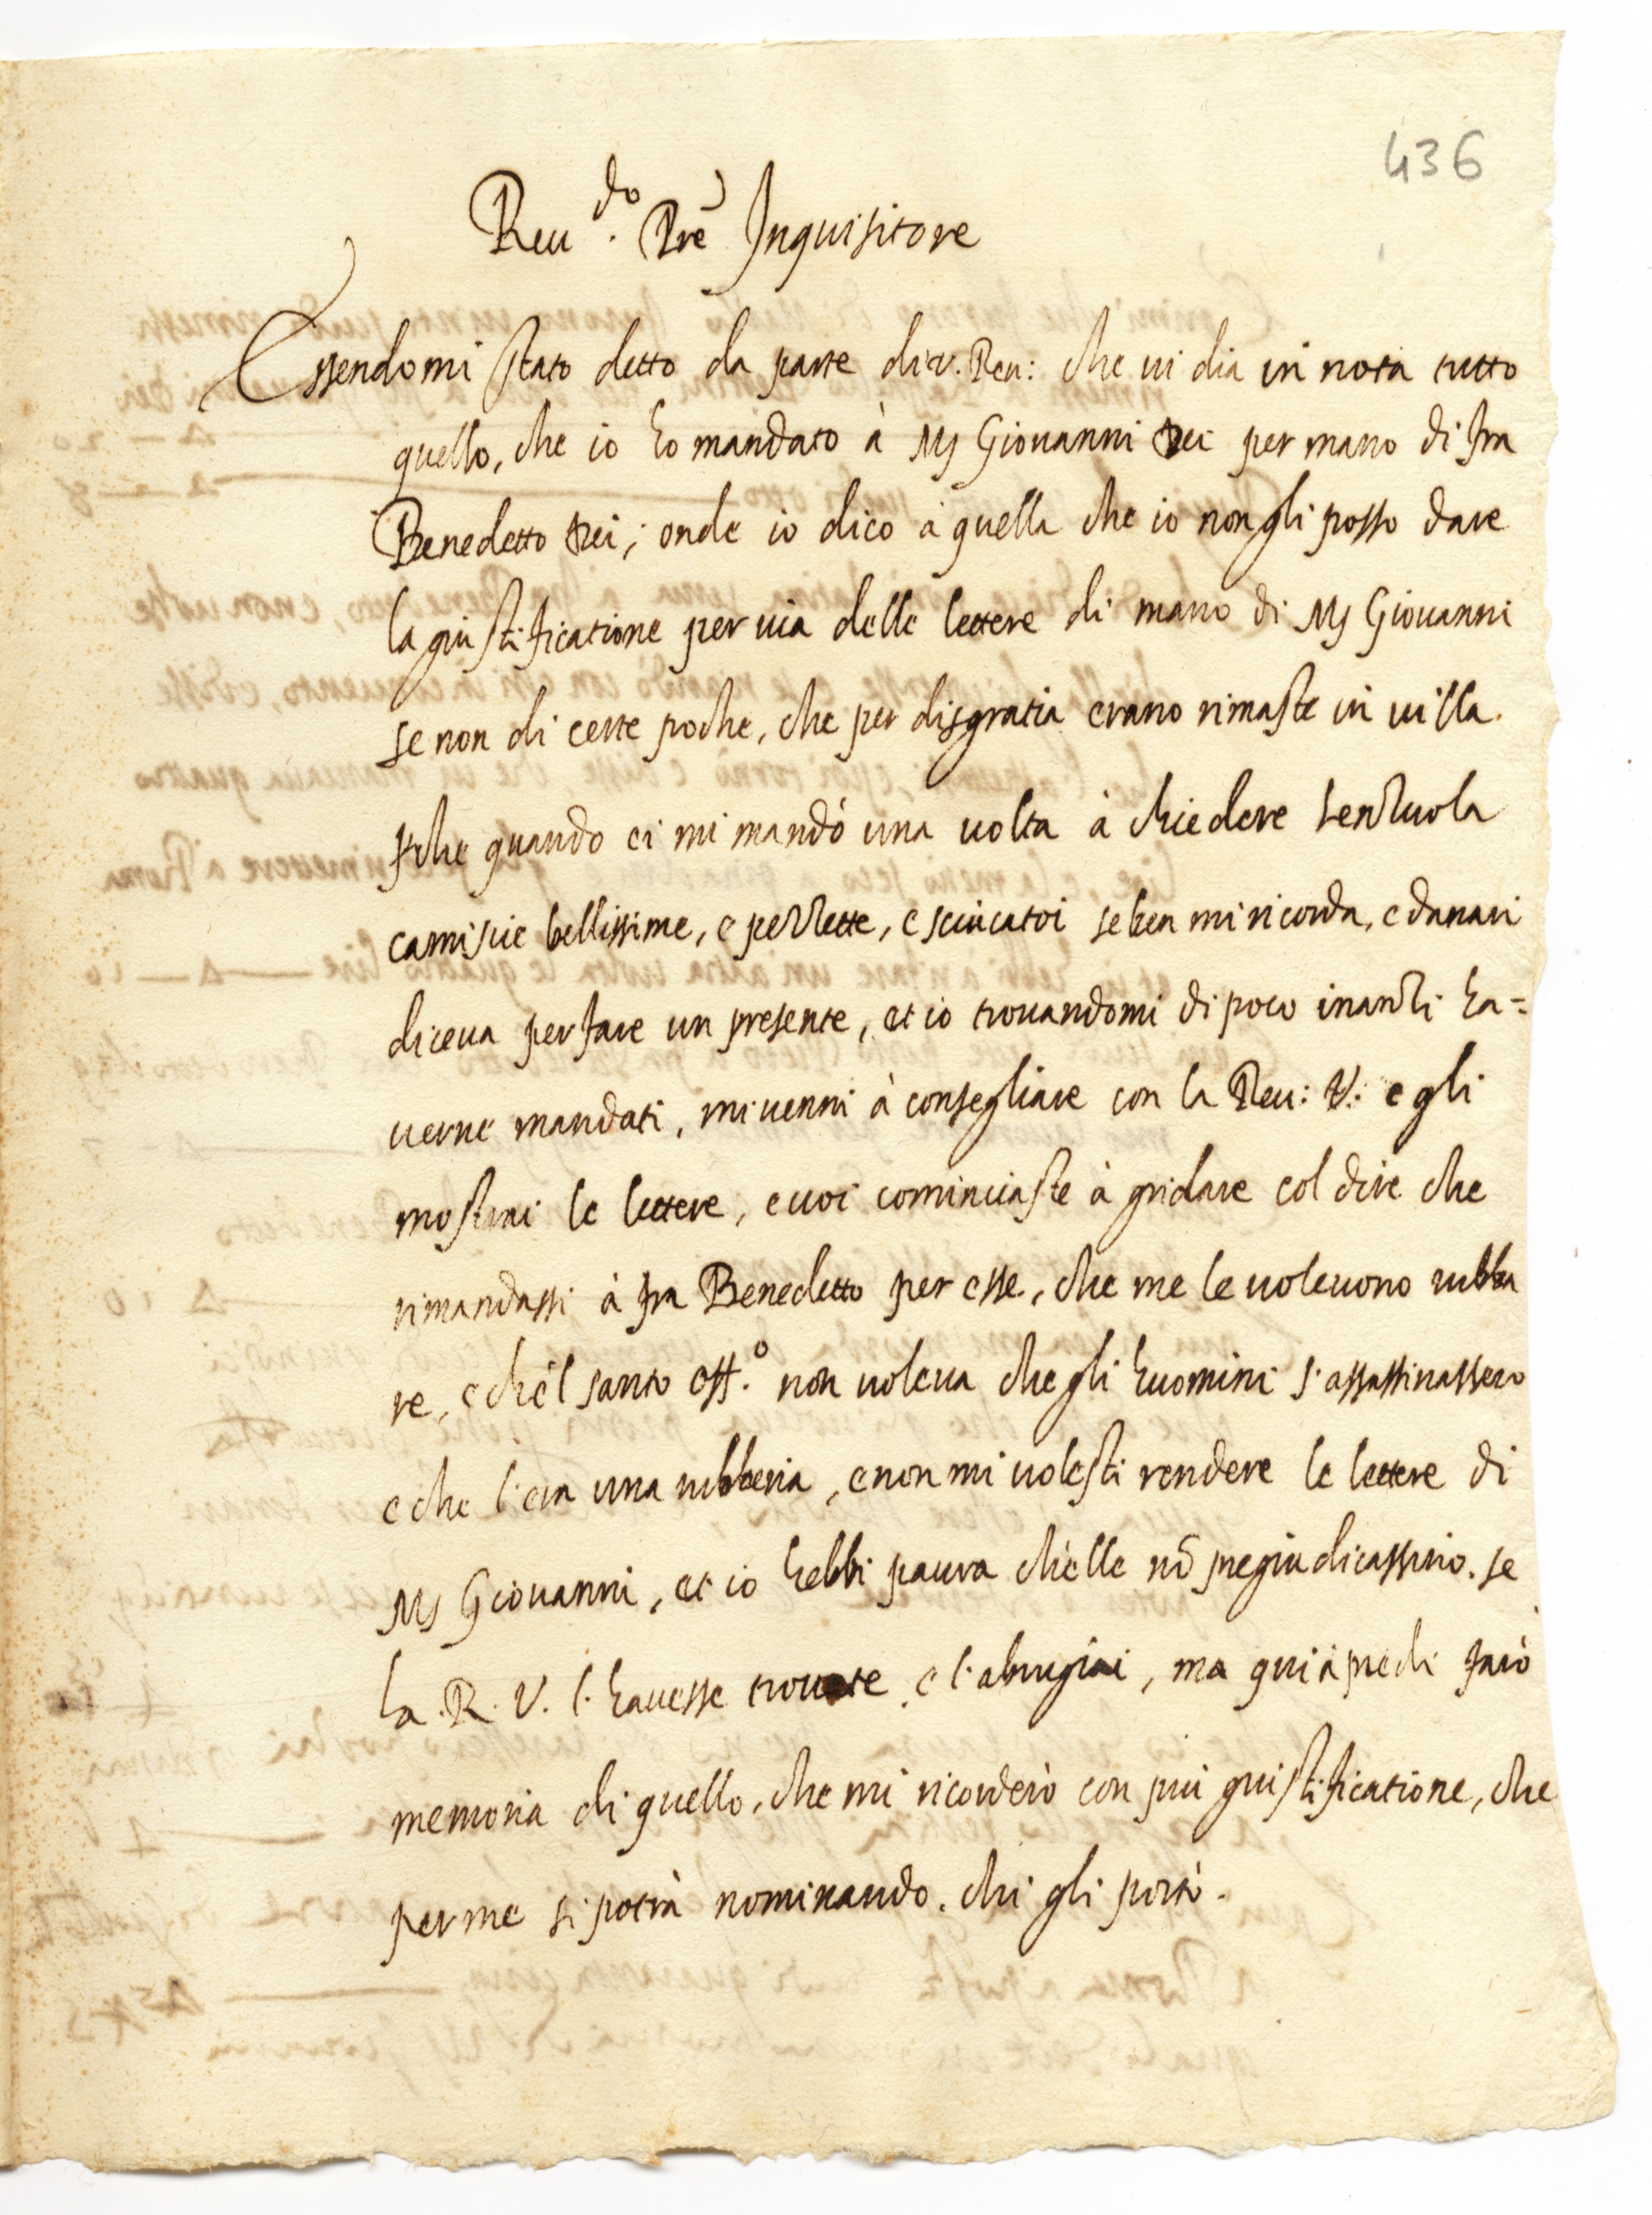 436
Reu.do Pre Inquisitore
Essendomi stato detto da parte di v. Reu: che ui dia in nota tutto
quello, che io ho mandato à Ms Giouanni Rei per mano di fra
Benedetto Rei; onde io dico à quella che io non gli posso dare
la giustificatione per uia delle lettere di mano di Ms Giouanni
se non di certe poche, che per disgratia erano rimaste in uilla.
che quando ei mi mandò una uolta à chiedere lenzuola
camiscie bellissime, e pezzette, e sciucatoi se ben mi ricorda, e danari
diceua per fare un presente, et io trouandomi di poco inanzi ha=
uerne mandati, mi uenni à consegliare con la Reu: V: e gli
mostrai le lettere, e uoi cominciaste à gridare col dire che
rimandassi à fra Benedetto per esse, che me le uoleuono rubba
re, e che'l santo off.o non uoleua che gli huomini s'assassinassero
e che l'era una rubberia, e non mi uolesti rendere le lettere di
Ms Giouanni, et io hebbi paura ch'elle nō pregiudicassino. se
la. R. V. l'hauesse trouate e l'abrugiai, ma qui à piedi farò
memoria di quello, che mi ricorderò con piu giustificatione, che
per me si potrà nominando. chi gli portò.